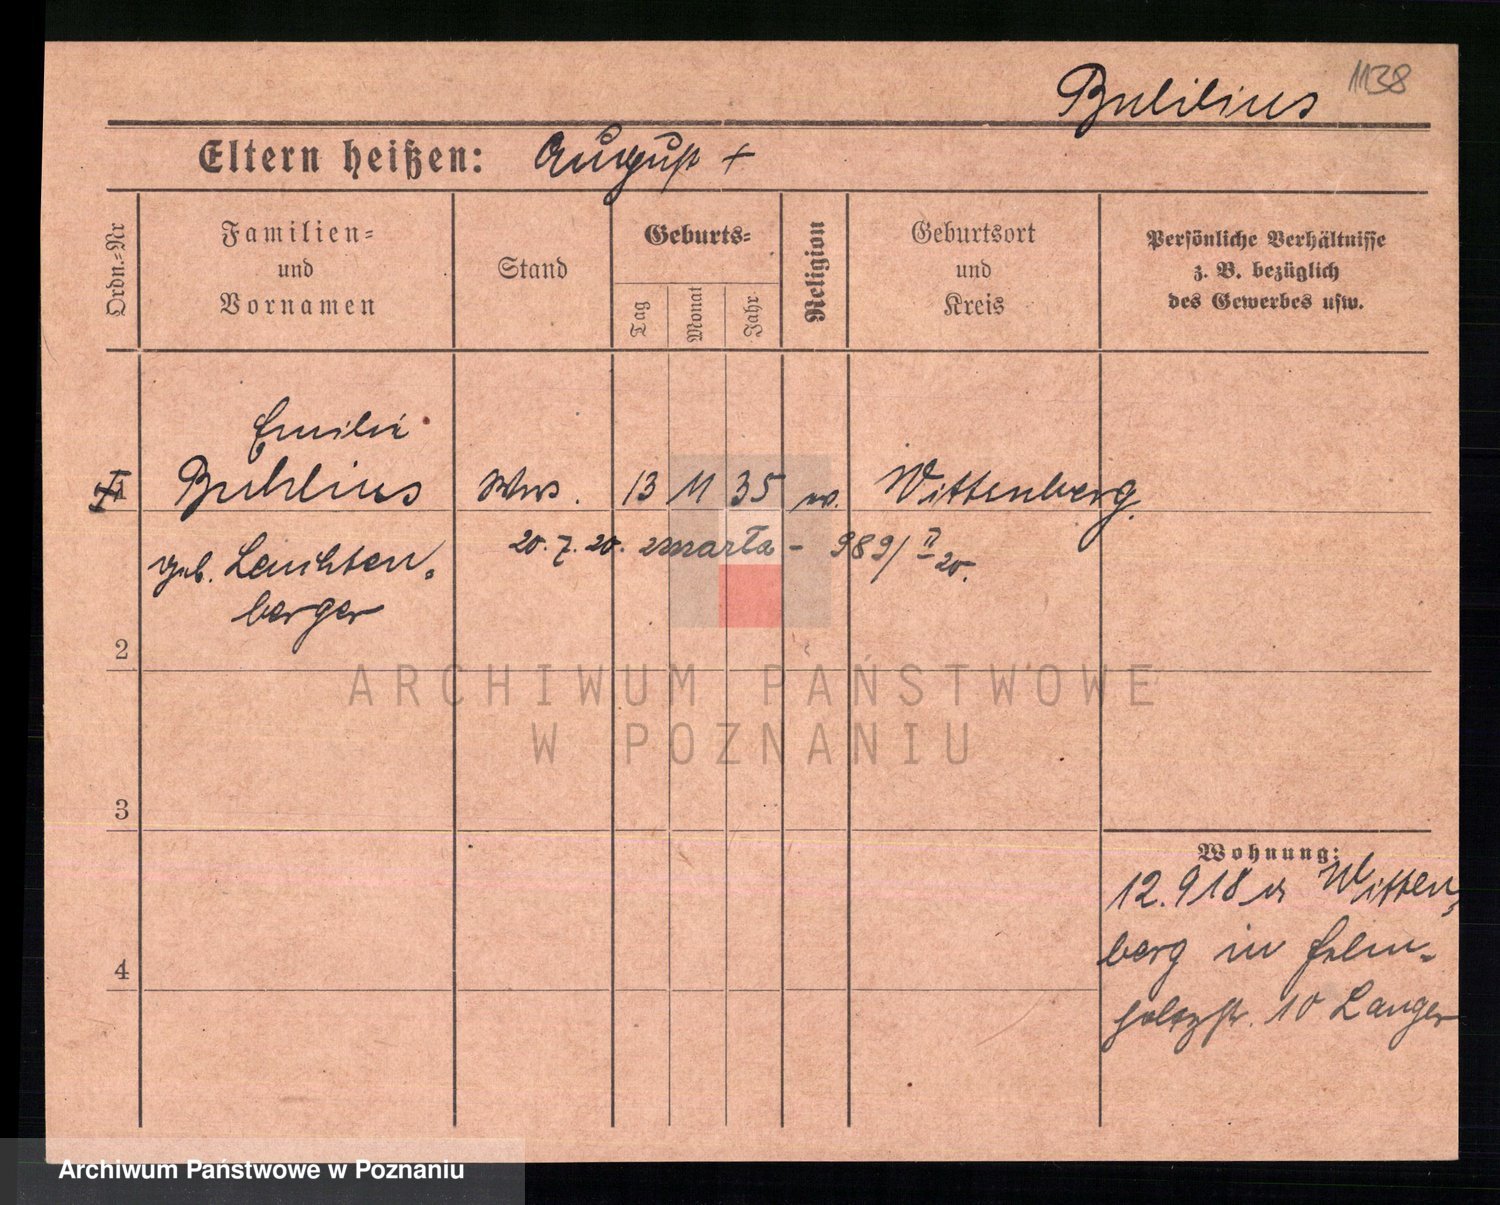 1138
Buhlius
Eltern heißen: August +
Ordn.-Nr
Familien-
und
Vornamen
Stand
Geburts-
Tag
Monat
Jahr
Religion
Geburtsort
und
Kreis
Persönliche Verhältnisse
z. B. bezüglich
des Gewerbes usw.
Emilie
1 Buhlius Wws. 13 11 35 ev. Wittenberg
20.7.20. zmarła - 989/II 20.
geb. Leuchten-
berger
2
3
4
Wohnung:
12.9 18 Witten-
berg in Helm-
holtzstr. 10 Langer
ARCHIWUM PAŃSTWOWE
W POZNANIU
Archiwum Państwowe w Poznaniu